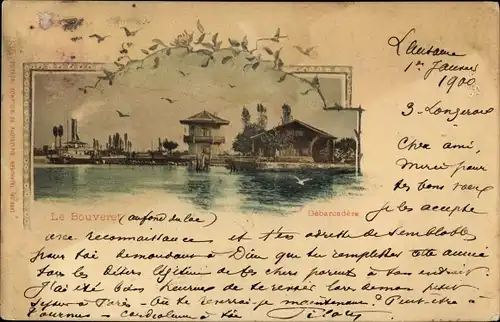 Lausanne
1er Janvier
1900
3. Longeraie
Cher ami,
Merci pour
tes bons vœux
je les accepte
Le Bouveret (au fond du lac)
Débarcadère
avec reconnaissance et t'en adresse de semblables
pour toi demandant à Dieu que tu remplisses cette année
tous les désirs légitimes de tes chers parents à ton endroit
J'ai été bien heureux de te revoir lors de mon petit
séjour à Paris - Où te reverrai-je maintenant? Peut-être à
- cordialement à toi